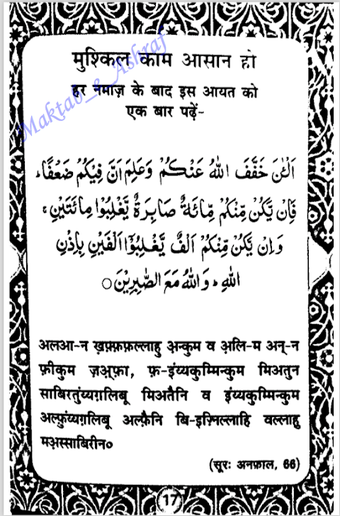 मुश्किल काम आसान हो
हर नमाज़ के बाद इस आयत को
एक बार पढ़ें-
Maktab_e_Ashraf
اَلْـٰٔنَ خَفَّفَ اللّٰهُ عَنْكُمْ وَعَلِمَ اَنَّ فِيْكُمْ ضَعْفًا ؕ
فَاِنْ يَّكُنْ مِّنْكُمْ مِّائَةٌ صَابِرَةٌ يَّغْلِبُوْا مِائَتَيْنِ ۚ
وَاِنْ يَّكُنْ مِّنْكُمْ اَلْفٌ يَّغْلِبُوْۤا اَلْفَيْنِ بِاِذْنِ
اللّٰهِ ؕ وَاللّٰهُ مَعَ الصّٰبِرِيْنَ ۝
अलआ-न ख़फ़्फ़फ़ल्लाहु अ़न्कुम व अ़लि-म अन्-न
फ़ीकुम ज़अ़्फ़ा, फ़-इंय्यकुम्मिन्कुम मिअतुन
साबिरतुंय्यग़लिबू मिअतैनि व इंय्यकुम्मिन्कुम
अल्फ़ुंय्यग़लिबू अल्फ़ैनि बि-इज़्निल्लाहि वल्लाहु
मअ़स्साबिरीन०
(सूरः अनफ़ाल, 66)
17